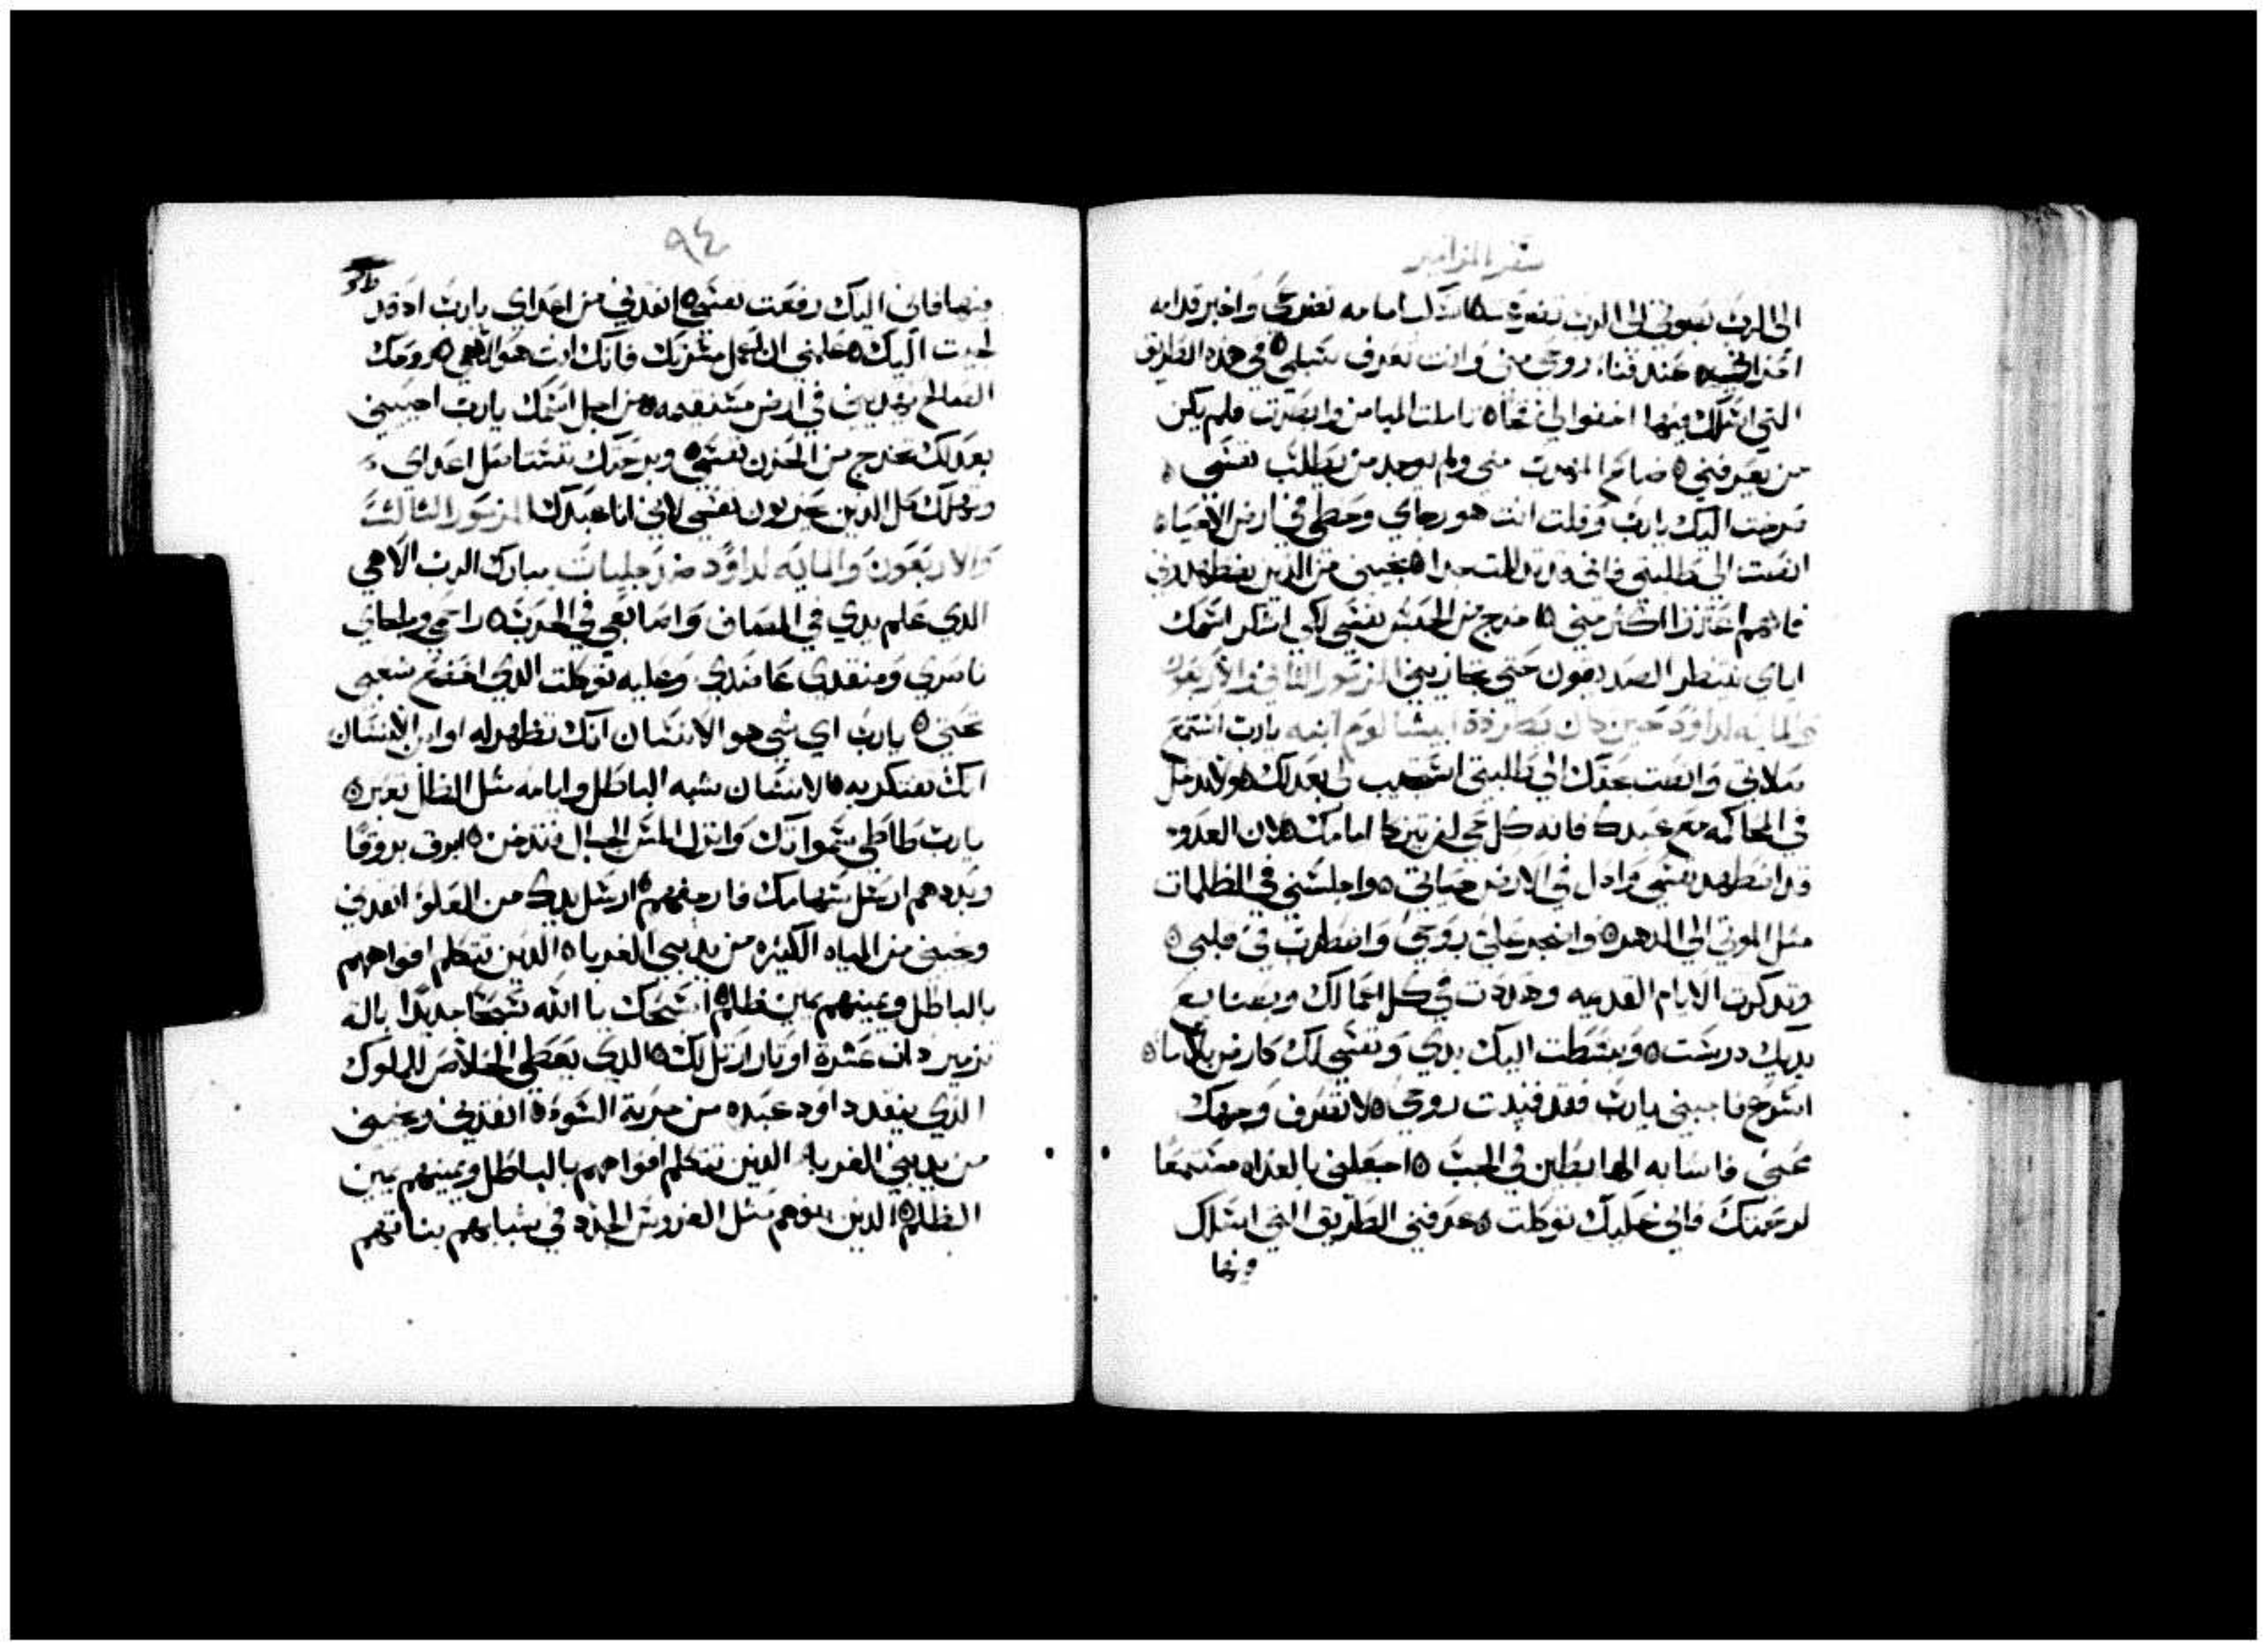 سفر المزامير
الى الرب بصوتي الى الرب تضرعت اسكب امامه تضرعي واخبر قدامه
احزاني عند فناء روحي مني وانت تعرف سبلي في هذه الطريق
التي اسلك فيها اخفوا لي فخا تاملت الميامن وابصرت فلم يكن
من يعرفني ضاع المهرب مني ولم يوجد من يطلب نفسي
صرخت اليك يارب وقلت انت هو رجاي وحظي في ارض الاحياء
انصت الى طلبتي فاني قد تذللت جدا نجيني من الذين يضطهدوني
فانهم اعتزوا اكثر مني اخرج من الحبس نفسي لكي اشكر اسمك
اياي ينتظر الصديقون حتى تجازيني المزمور الثاني والاربعون
والمايه لداوود حين كان يطرده ابيشالوم ابنه يارب استمع
صلاتي وانصت بحقك الى طلبتي استجيب لي بعدلك ولا تدخل
في المحاكمه مع عبدك فانه كل حي لن يتزكا امامك لان العدو
قد اضطهد نفسي واذل في الارض حياتي واجلسني في الظلمات
مثل الموتى الى الدهر واضجر علي روحي واضطرب في قلبي
وتذكرت الايام القديمه وهذذت في كل اعمالك وبصنايع
يديك درست وبسطت اليك يدي ونفسي لك كارض بلا ما
اسرع فاجيبني يارب فقد فنيت روحي لا تصرف وجهك
عني فاشابه الهابطين في الجب اجعلني بالغداه مستمعا
لرحمتك فاني عليك توكلت عرفني الطريق التي اسلك
فيها
٩٤
فيها فاني اليك رفعت نفسي انقذني من اعداي يارب اذ قد
لجيت اليك علمني ان اعمل مشرتك فانك انت هو الاهي روحك
الصالح يهديني في ارض مستقيمه من اجل اسمك يارب احييني
بعدلك تخرج من الحزن نفسي وبرحمتك تستاصل اعداي
وتهلك كل الذين يحزنون نفسي لاني انا عبدك المزمور الثالث
والاربعون والمايه لداوود ضد جليات مبارك الرب الاهي
الذي علم يدي في المصاف واصابعي في الحرب راحمي وملجاي
ناصري ومنقذي عاضدي وعليه توكلت الذي اخضع شعبي
تحتي يارب اي شي هو الانسان انك تظهر له او ابن الانسان
انك تفتكر به الانسان يشبه الباطل وايامه مثل الظلال تعبر
يارب طاطي سمواتك وانزل المس الجبال فتدخن ابرق بروقا
وبددهم ارسل سهامك فارجفهم ارسل يدك من العلو انقذني
ونجيني من المياه الكثيره من يد بني الغربا الذين تتكلم افواههم
بالباطل ويمينهم يمين ظلم اسبحك يا الله تسبحا جديدا بالة
تزمير ذات عشرة اوتار ارتل لك الذي يعطي الخلاص للملوك
الذي ينقذ داوود عبده من حربة السوء انقذني ونجيني
من يد بني الغربا الذين تتكلم افواههم بالباطل ويمينهم يمين
الظلم الذين بنوهم مثل الغروس الجدد في شبابهم بناتهم